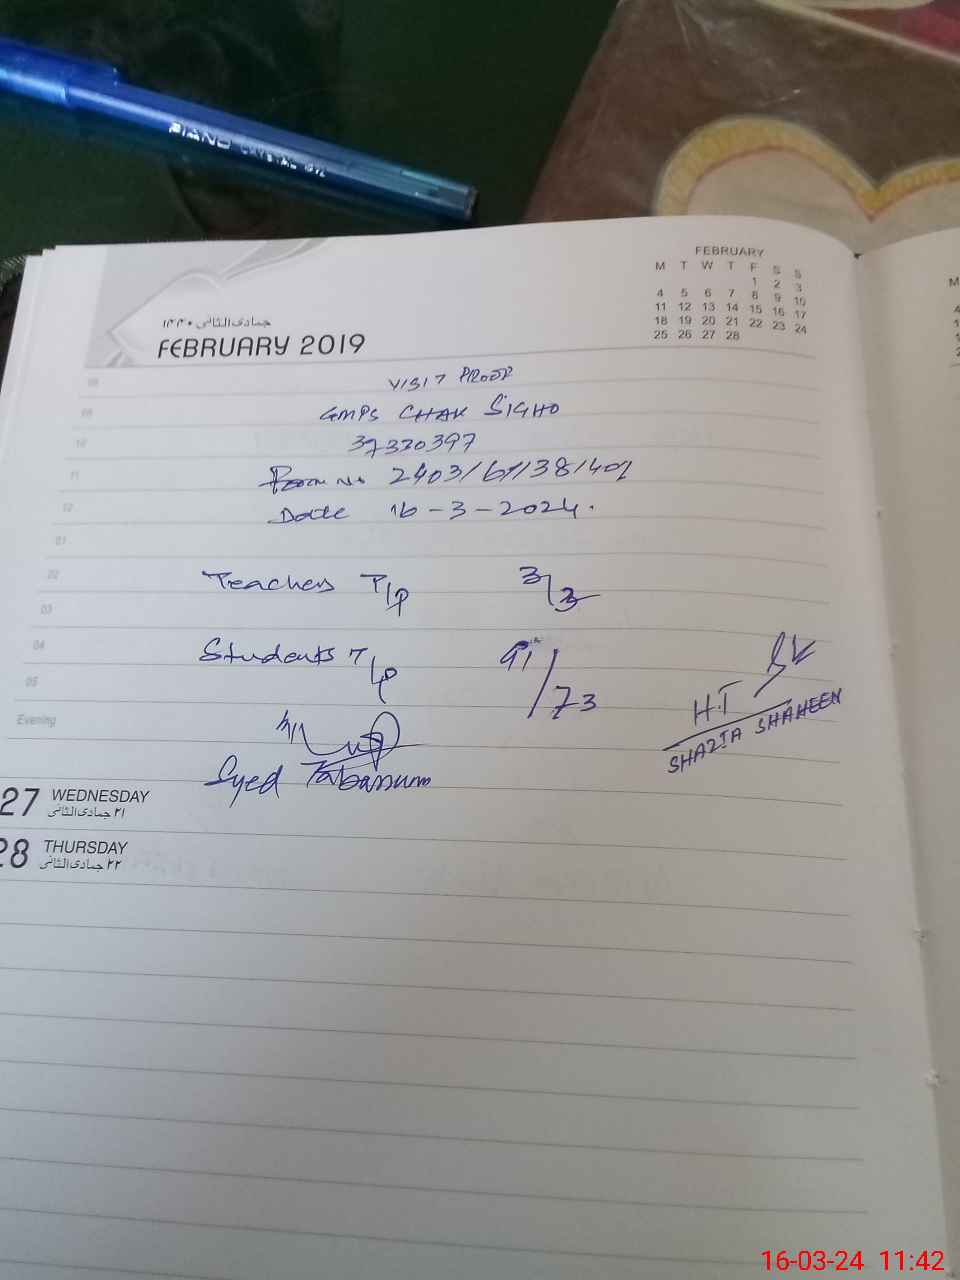 PIANO CRYSTAL GEL
جمادی الثانی ۱۴۴۰
FEBRUARY 2019
FEBRUARY
M T W T F S S
1 2 3
4 5 6 7 8 9 10
11 12 13 14 15 16 17
18 19 20 21 22 23 24
25 26 27 28
08
VISIT PROOF
09
GMPS CHAK SIGHO
10
37330397
11
Form No 2403/61/38/401
12
Date 16-3-2024.
01
02
Teachers T/P 3/3
03
04
Students T/P 91/73
05
SK
H.T
SHAZIA SHAHEEN
Evening
Syed Tabassum
27 WEDNESDAY
۲۱ جمادی الثانی
28 THURSDAY
۲۲ جمادی الثانی
16-03-24 11:42